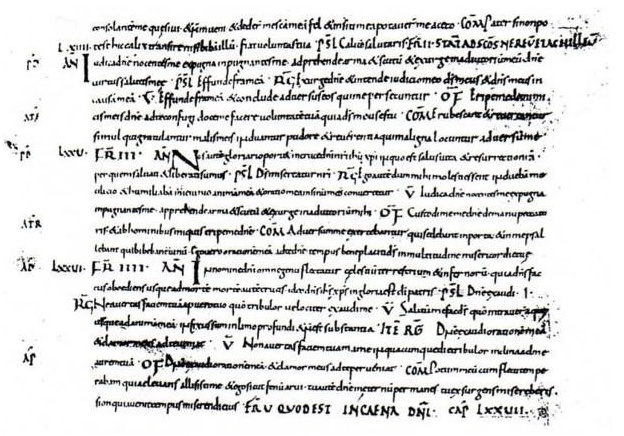 consolantēme quesiui & ninueni & deder inescamea fel & insitimea potauer me aceto · COM Pater sinonpo
LXXIIII. test hic calix transire nisi bibā illū fiat uoluntas tua PSL Calicē salutaris FR II STAT AD SCOS NEREŪ ET ACHILLEŪ
AN Iudica dñe nocentes me expugna inpugnantesme adprehende arma & scutū & exurge in adiutoriū meū dñe
uirtus salutis meę PSL Effunde frameā RG Exurge dñe & intende iudiciomeo ds meus & dñs meus in
causā meā V Effunde frameā & conclude aduersus eos qui me persecuntur OF Eripe me de inimicis
cis meis dñe ad te confugi doce me facere uoluntatē tuā quia ds meus es tu COM Erubescant & reuereantur
simul qui gratulantur malis meis induantur pudore & reuerentia qui maligna locuntur aduersus me
LXXV. FR III · AN Nos autē gloriari oport& in cruce dñi nri ihu xpi in quo est salus uita & resurrectio nra
per quem saluati & liberati sumus · PSL Ds misereatur nri RG Ego autē dum mihi molesti essent induebā me
cilicio & humiliabā in ieiunio animā meā & oratio mea in sinu meo conuertetur V Iudica dñe nocentes me expugna
inpugnantes me apprehende arma & scutū & exurge in adiutoriū mihi OF Custodi me dñe de manu peccato
ris & ab hominibus iniquis eripe me dñe · COM Aduersum me exercebantur qui sedebant in porta & in me psal
lebant qui bibebant uinū Ego uero orationē meā ad te dñe tempus beneplaciti ds in multitudine misericordię tuę
LXXVI. FR IIII · AN In nomine dñi omne genu flectatur celestiū terrestriū & infernorū quia dñs fac
tus oboediens usque ad mortē mortē autē crucis ideo dñs ihs xps in gloria est di patris · PSL Dñe exaudi · I
RG Ne auertas faciē tuā a puero tuo quō tribulor uelociter exaudi me V Saluū me fac ds quō intrauer aquę
usque ad animā meā infixus sum in limo profundi & non est substantia ITE RG Dñe exaudi orationē meā
& clamor meus ad te ueniat V Non auertas faciē tuā a me in quacumque die tribulor inclina ad me
aurē tuā OF Dñe exaudi orationē meā & clamor meus ad te perueniat COM Potum meū cum fletu tempe
rabam quia eleuans allisisti me & ego sicut fenū arui tu autē dñe in eternū permanes tu exsurgens misereberis
sion quia uenit tempus miserendi eius FR V QUOD EST IN CAENA DNI · CAP LXXVII